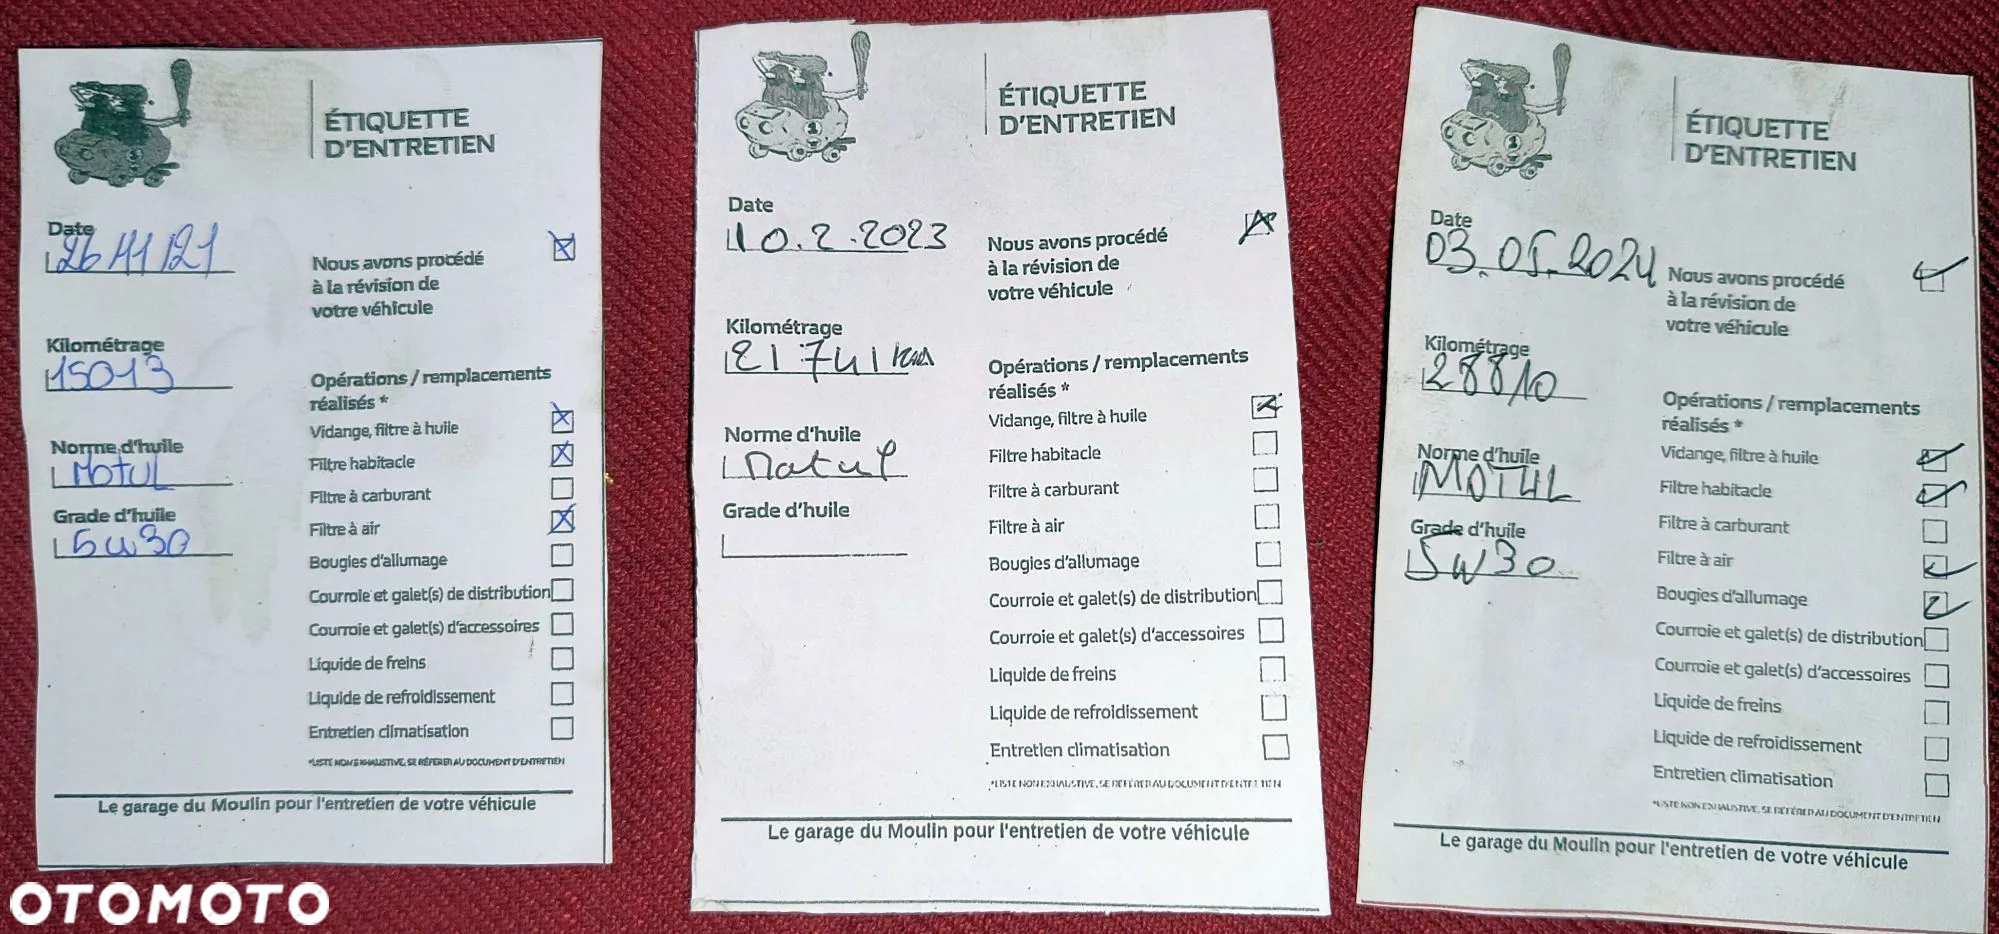 ÉTIQUETTE
D'ENTRETIEN
Date
26/11/21
Nous avons procédé
à la révision de
votre véhicule
Kilométrage
15013
Opérations / remplacements
réalisés *
Norme d'huile
Motul
Grade d'huile
5w30
Vidange, filtre à huile
Filtre habitacle
Filtre à carburant
Filtre à air
Bougies d'allumage
Courroie et galet(s) de distribution
Courroie et galet(s) d'accessoires
Liquide de freins
Liquide de refroidissement
Entretien climatisation
*LISTE NON EXHAUSTIVE, SE RÉFÉRER AU DOCUMENT D'ENTRETIEN
Le garage du Moulin pour l'entretien de votre véhicule
1
ÉTIQUETTE
D'ENTRETIEN
Date
10.2.2023
Nous avons procédé
à la révision de
votre véhicule
Kilométrage
21741 km
Opérations / remplacements
réalisés *
Norme d'huile
Motul
Grade d'huile
Vidange, filtre à huile
Filtre habitacle
Filtre à carburant
Filtre à air
Bougies d'allumage
Courroie et galet(s) de distribution
Courroie et galet(s) d'accessoires
Liquide de freins
Liquide de refroidissement
Entretien climatisation
*LISTE NON EXHAUSTIVE, SE RÉFÉRER AU DOCUMENT D'ENTRETIEN
Le garage du Moulin pour l'entretien de votre véhicule
1
ÉTIQUETTE
D'ENTRETIEN
Date
03.05.2024
Nous avons procédé
à la révision de
votre véhicule
Kilométrage
28810
Opérations / remplacements
réalisés *
Norme d'huile
MOTUL
Grade d'huile
5W30
Vidange, filtre à huile
Filtre habitacle
Filtre à carburant
Filtre à air
Bougies d'allumage
Courroie et galet(s) de distribution
Courroie et galet(s) d'accessoires
Liquide de freins
Liquide de refroidissement
Entretien climatisation
*LISTE NON EXHAUSTIVE, SE RÉFÉRER AU DOCUMENT D'ENTRETIEN
Le garage du Moulin pour l'entretien de votre véhicule
OTOMOTO